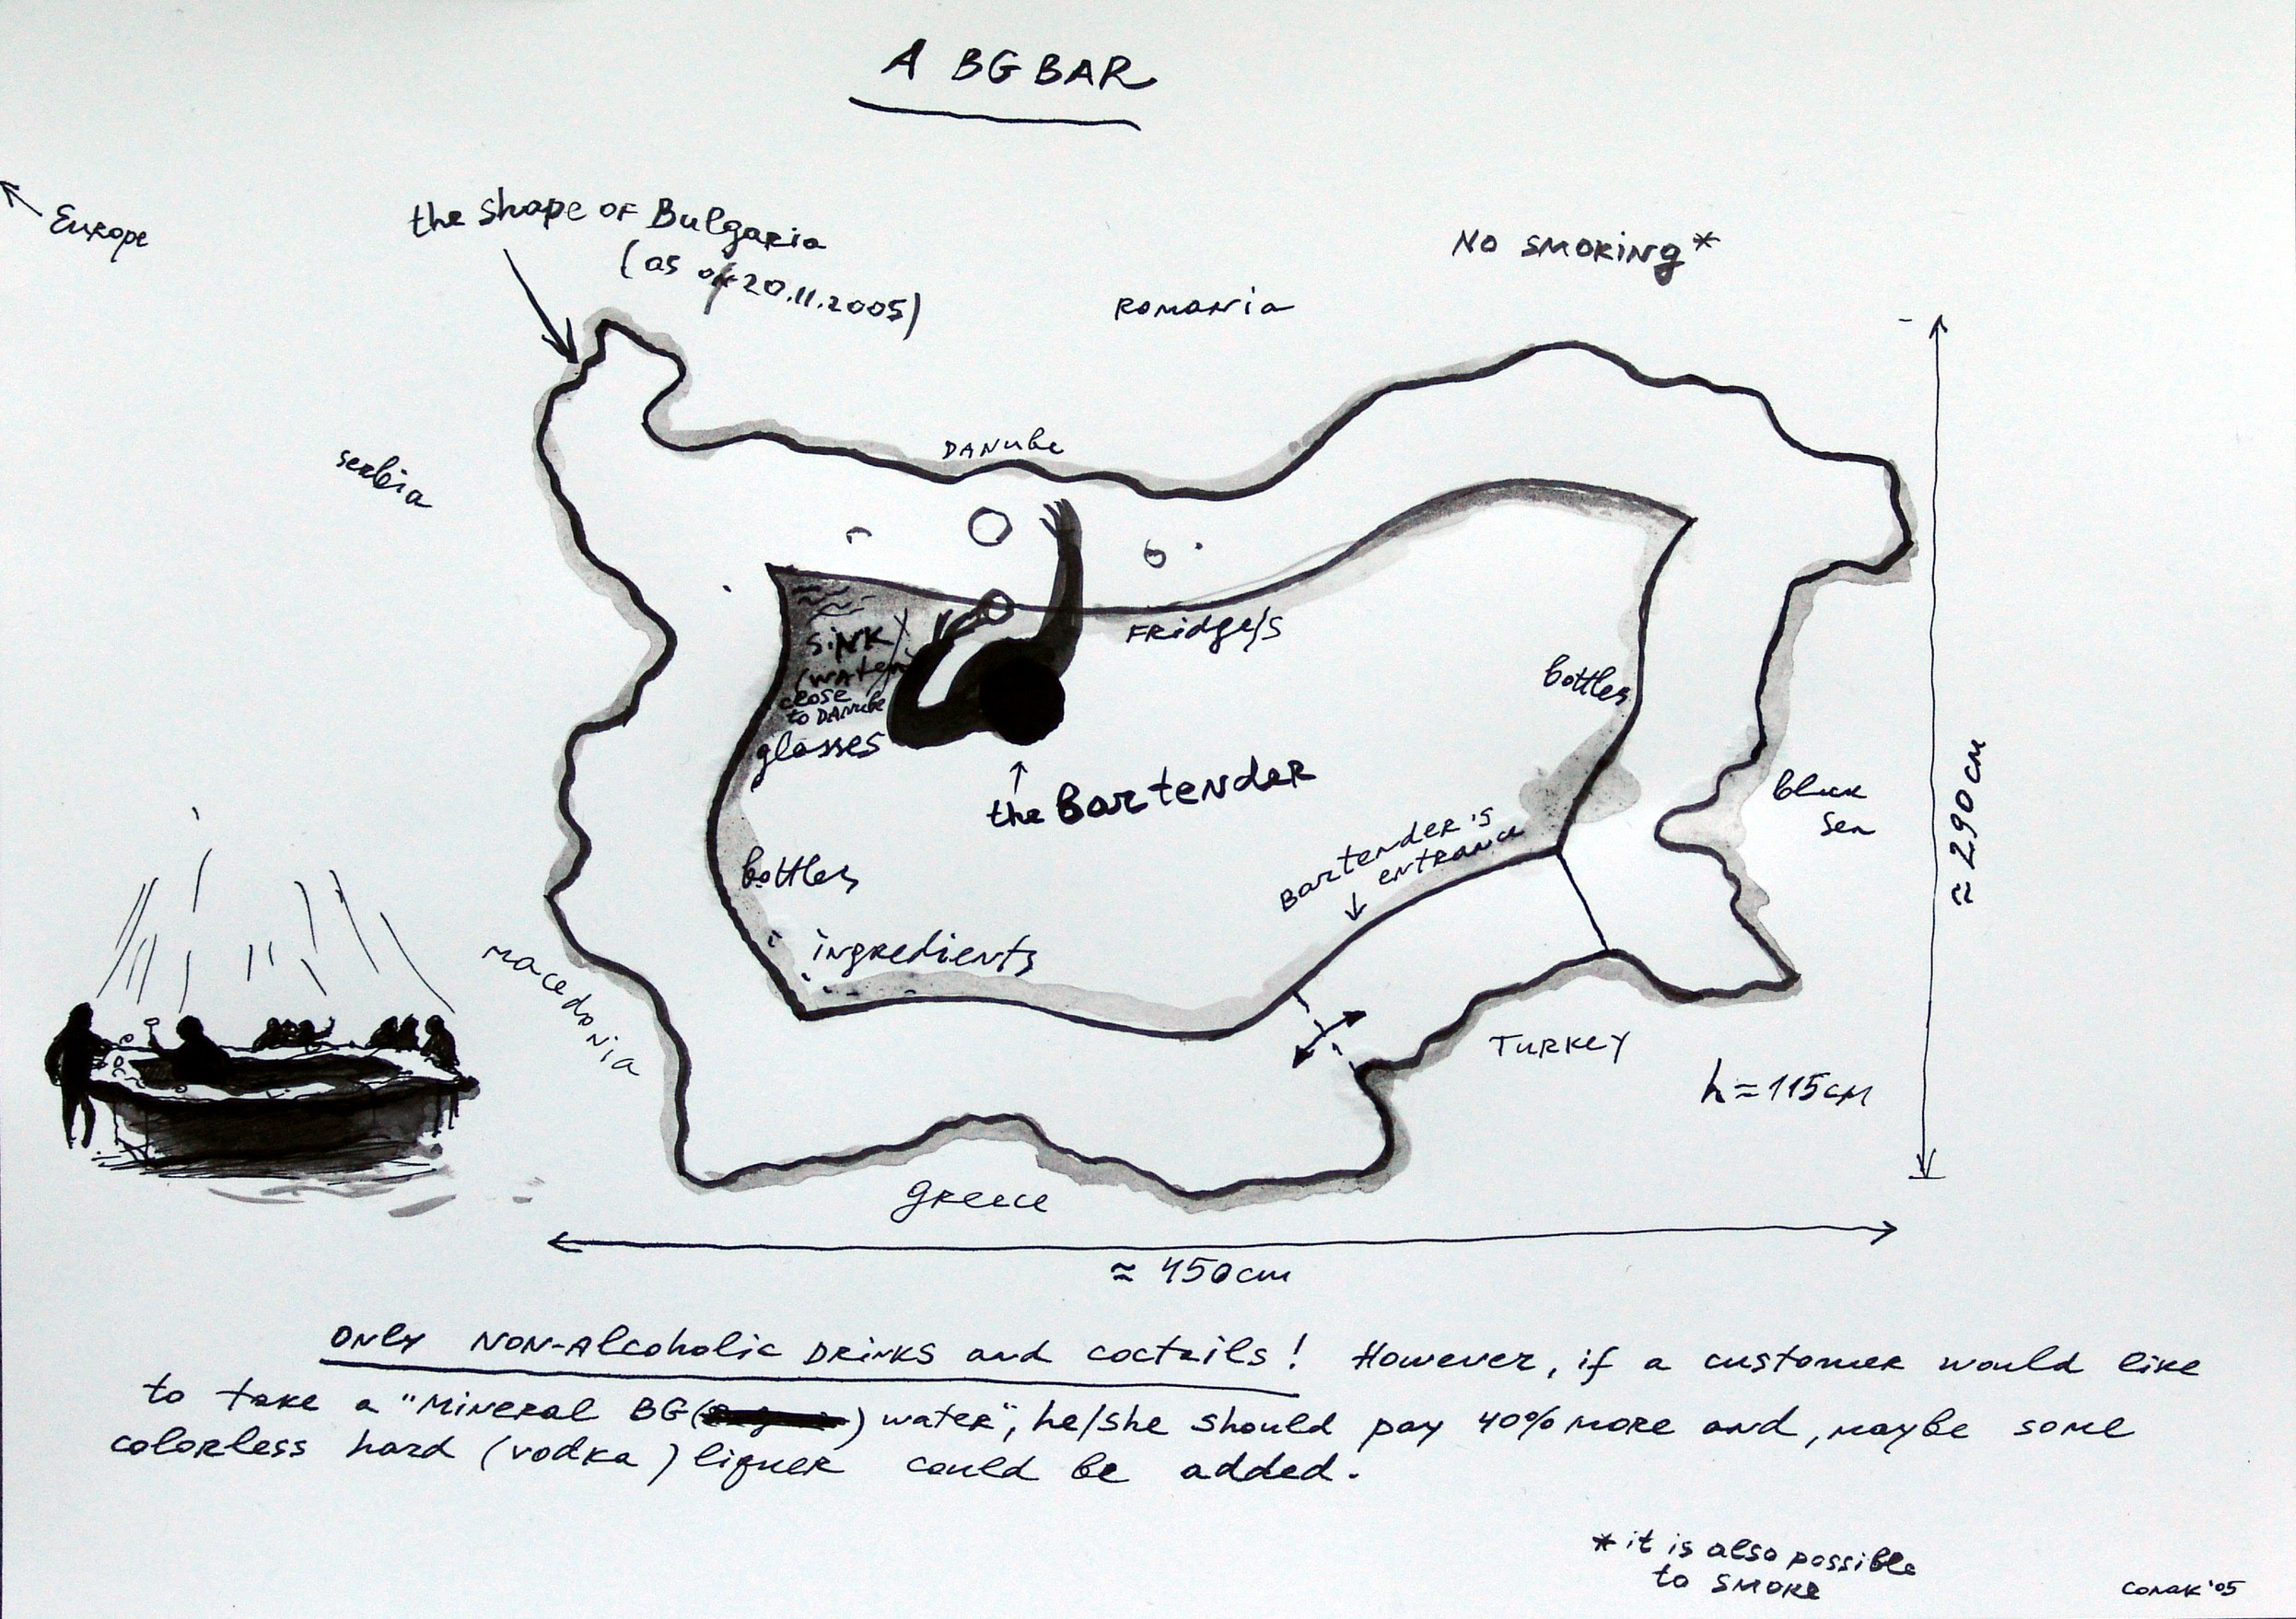 A BG BAR
Europe
the shape of Bulgaria
(as of 20.11.2005)
NO SMOKiNg*
ROMANia
serbia
DANube
SiNK
(water)
close
to DANube
glasses
FRidge/s
bottles
the BarteNdeR
black
sea
≈ 290cm
BarteNdeR's
eNtRANce
bottles
iNgRedients
macedonia
TURKEY
h ≈ 115cm
gReece
≈ 450cm
ONLY NON-Alcoholic DRiNKS and coctails! However, if a customer would like
to take a "MiNeRal BG() water", he/she should pay 40% more and, maybe some
colorless hard (vodka) liquer could be added.
* it is also possible
to SMOKE